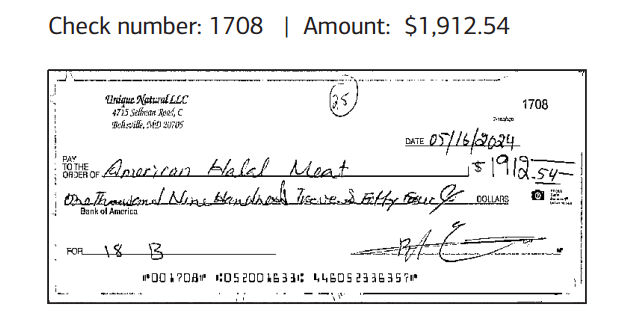 Check number: 1708 | Amount: $1,912.54
Unique Natural LLC
4715 Sellman Road, C
Beltsville, MD 20705
25
1708
DATE 05/16/2024
PAY
TO THE
ORDER OF American Halal Meat $ 1912.54
One Thousand Nine Hundred Twelve & Fifty Four DOLLARS
Bank of America
FOR 18 B
⑈001708⑈ ⑆052001633⑆ 446052336357⑈